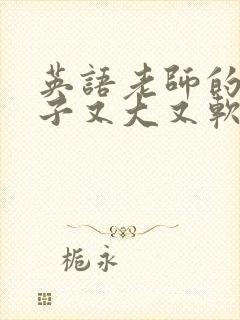 英語老師的
子又大又軟
栀永